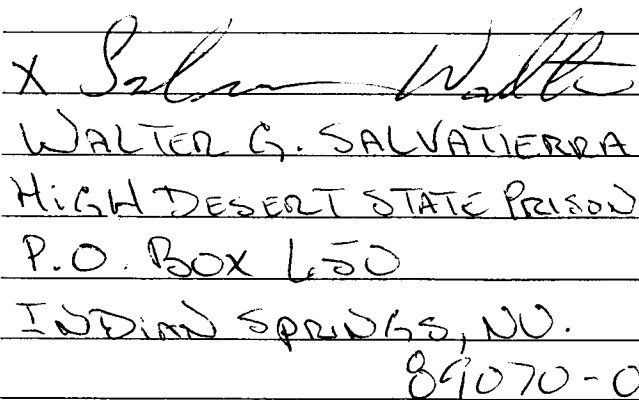 X Salva Walter
WALTER G. SALVATIERRA
HIGH DESERT STATE PRISON
P.O. BOX 650
INDIAN SPRINGS, NV.
89070-0